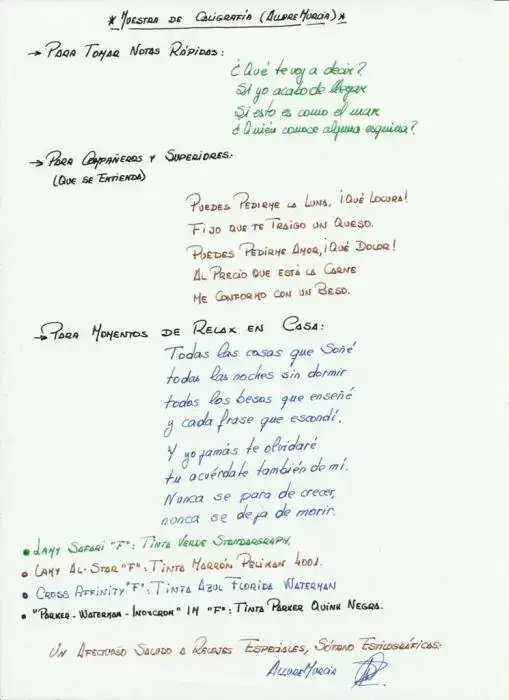 * Muestra de Caligrafía (AllureMurcia) *
→ Para Tomar Notas Rápidas:
¿Qué te voy a decir?
Si yo acabo de llegar
Si esto es como el mar
¿Quién conoce alguna esquina?
→ Para Compañeros y Superiores:
(Que se Entienda)
Puedes Pedirme la Luna, ¡Qué Locura!
Fijo que te Traigo un Queso.
Puedes Pedirme Amor, ¡Qué Dolor!
Al Precio que está la Carne
Me Conformo con un Beso.
→ Para Momentos de Relax en Casa:
Todas las cosas que Soñé
todas las noches sin dormir
todos los besos que enseñé
y cada frase que escondí.
Y yo jamás te olvidaré
tu acuérdate también de mí.
Nunca se para de crecer,
nunca se deja de morir.
• Lamy Safari "F": Tinta Verde Standargraph.
• Lamy Al-Star "F": Tinta Marrón Pelikan 4001.
• Cross Affinity "F": Tinta Azul Florida Waterman
• "Parker-Waterman-Inoxcrom" IM "F": Tinta Parker Quink Negra.
Un Afectuoso Saludo a Relojes Especiales, Sótano Estilográficas.
AllureMurcia